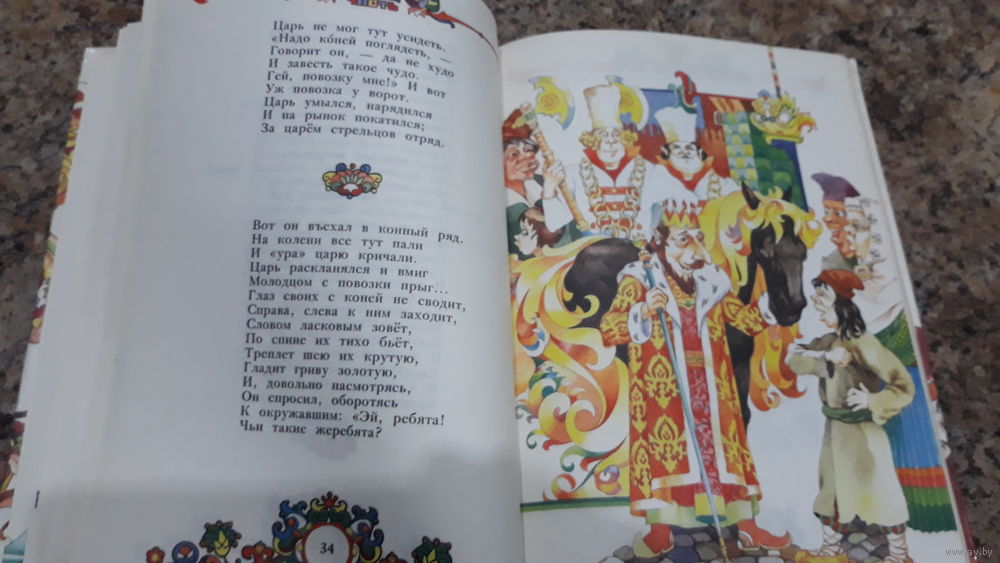 Царь не мог тут усидеть.
«Надо ко́ней поглядеть, —
Говорит он, — да не худо
И завесть такое чудо.
Гей, повозку мне!» И вот
Уж повозка у ворот.
Царь умылся, нарядился
И на рынок покатился;
За царём стрельцов отряд.
Вот он въехал в конный ряд.
На колени все тут пали
И «ура» царю кричали.
Царь раскланялся и вмиг
Молодцом с повозки прыг...
Глаз своих с коней не сводит,
Справа, слева к ним заходит,
Словом ласковым зовёт,
По спине их тихо бьёт,
Треплет шею их крутую,
Гладит гриву золотую,
И, довольно насмотрясь,
Он спросил, оборотясь
К окружавшим: «Эй, ребята!
Чьи такие жеребята?
34
www.ay.by